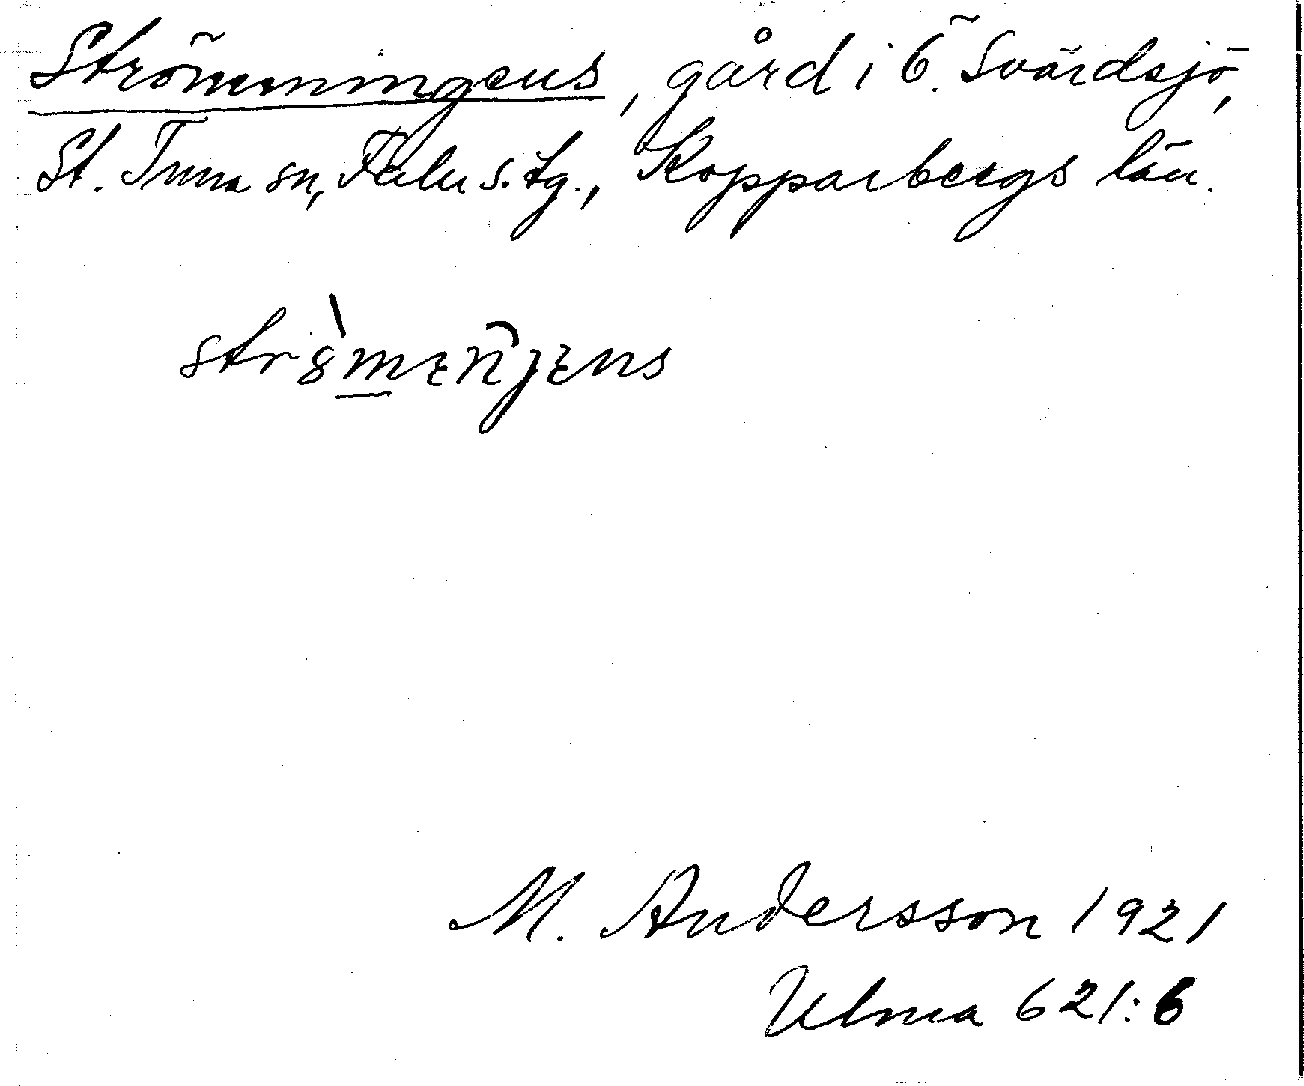 Strömmingens, gård i Ö. Svärdsjö,
St. Tuna sn, Falu s. tg., Kopparbergs län.
M. Andersson 1921
Ulma 621:6